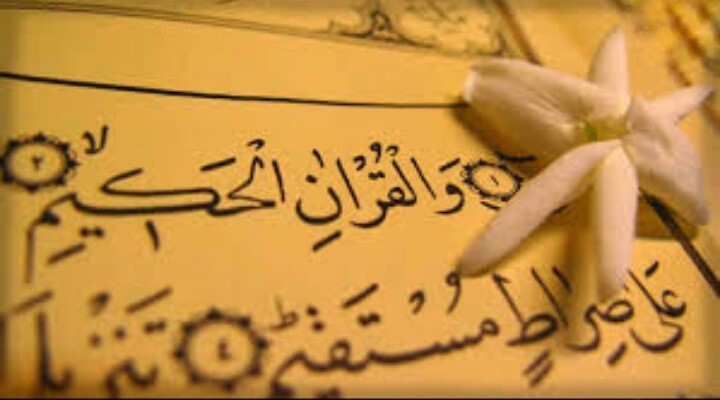 ١ وَالْقُرْاٰنِ الْحَكِيْمِ ۙ ٢
عَلٰى صِرَاطٍ مُّسْتَقِيْمٍ ؕ ٤